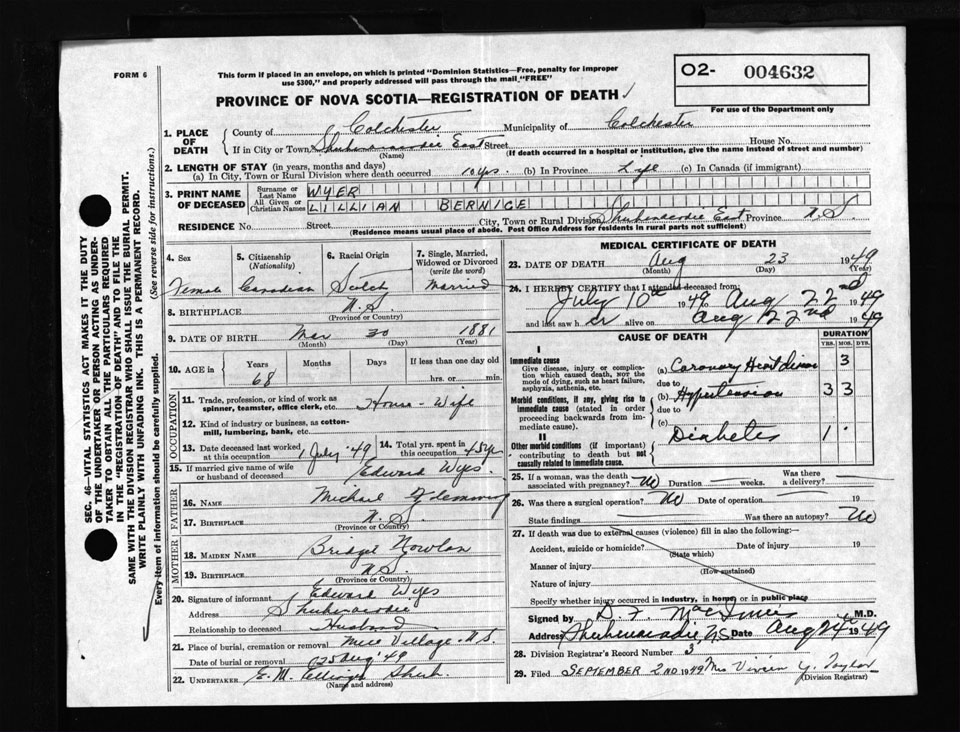 FORM 6
This form if placed in an envelope, on which is printed "Dominion Statistics—Free, penalty for improper
use $300," and properly addressed will pass through the mail "FREE"
O2- 004632
For use of the Department only
PROVINCE OF NOVA SCOTIA—REGISTRATION OF DEATH
SEC. 46—VITAL STATISTICS ACT MAKES IT THE DUTY
OF THE UNDERTAKER OR PERSON ACTING AS UNDER-
TAKER TO OBTAIN ALL THE PARTICULARS REQUIRED
IN THE "REGISTRATION OF DEATH" AND TO FILE THE
SAME WITH THE DIVISION REGISTRAR WHO SHALL ISSUE THE BURIAL PERMIT.
WRITE PLAINLY WITH UNFADING INK. THIS IS A PERMANENT RECORD.
Every item of information should be carefully supplied. (See reverse side for instructions.)
1. PLACE OF DEATH
County of Colchester Municipality of Colchester
If in City or Town, Shubenacadie East Street House No.
(Name) (If death occurred in a hospital or institution, give the name instead of street and number)
2. LENGTH OF STAY (in years, months and days)
(a) In City, Town or Rural Division where death occurred 10 yrs. (b) In Province Life (c) In Canada (if immigrant)
3. PRINT NAME OF DECEASED
Surname or Last Name WYER
All Given or Christian Names LILLIAN BERNICE
RESIDENCE No. Street City, Town or Rural Division Shubenacadie East Province N.S.
(Residence means usual place of abode. Post Office Address for residents in rural parts not sufficient)
4. Sex
Female
5. Citizenship (Nationality)
Canadian
6. Racial Origin
Scotch
7. Single, Married, Widowed or Divorced (write the word)
Married
8. BIRTHPLACE N.S.
(Province or Country)
9. DATE OF BIRTH Mar 30 1881
(Month) (Day) (Year)
10. AGE in Years Months Days If less than one day old
68 hrs. or min.
OCCUPATION
11. Trade, profession, or kind of work as
spinner, teamster, office clerk, etc. House-Wife
12. Kind of industry or business, as cotton-
mill, lumbering, bank, etc.
13. Date deceased last worked
at this occupation 1 July '49
14. Total yrs. spent in
this occupation 45 yrs
15. If married give name of wife
or husband of deceased Edward Wyer
FATHER
16. NAME Michael Flemming
17. BIRTHPLACE N.S.
(Province or Country)
MOTHER
18. MAIDEN NAME Bridget Nowlan
19. BIRTHPLACE N.S.
(Province or Country)
20. Signature of informant Edward Wyer
Address Shubenacadie
Relationship to deceased Husband
21. Place of burial, cremation or removal Mice Village - N.S.
Date of burial or removal 25 Aug '49
22. UNDERTAKER E. M. Shub.
(Name and address)
MEDICAL CERTIFICATE OF DEATH
23. DATE OF DEATH Aug 23 1949
(Month) (Day) (Year)
24. I HEREBY CERTIFY that I attended deceased from:
July 10th 1949 to Aug 22nd 1949
and last saw her alive on Aug 22nd 1949
CAUSE OF DEATH
DURATION
YRS. MOS. DYS.
I
Immediate cause
Give disease, injury or complica-
tion which caused death, NOT the
mode of dying, such as heart failure,
asphyxia, asthenia, etc.
(a) Coronary Heart disease 3
due to
Morbid conditions, if any, giving rise to
immediate cause (stated in order
proceeding backwards from im-
mediate cause).
(b) Hypertension 3 3
due to
(c)
II
Other morbid conditions (if important)
contributing to death but not
causally related to immediate cause.
Diabetes 1
25. If a woman, was the death
associated with pregnancy? No Duration weeks. Was there
a delivery?
26. Was there a surgical operation? No Date of operation 19
State findings Was there an autopsy? No
27. If death was due to external causes (violence) fill in also the following:-
Accident, suicide or homicide? Date of injury 19
(State which)
Manner of injury
(How sustained)
Nature of injury
Specify whether injury occurred in industry, in home, or in public place
Signed by D. F. MacInnis M.D.
Address Shubenacadie, N.S. Date Aug 24th 1949
28. Division Registrar's Record Number 3
29. Filed SEPTEMBER 2ND 1949 Mrs Vivien Y. Taylor
(Division Registrar)